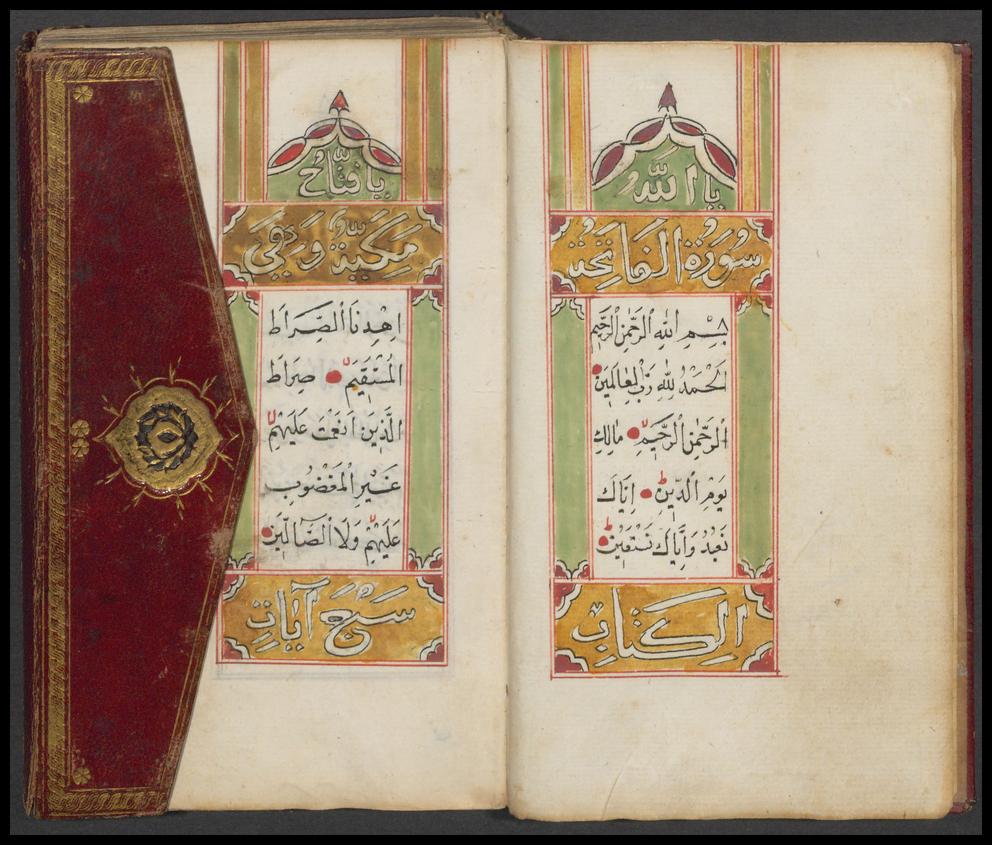 يا الله
سُورَة الفاتحة
بِسْمِ ٱللهِ ٱلرَّحْمٰنِ ٱلرَّحِيمِ
اَلْحَمْدُ لِلهِ رَبِّ ٱلْعَالَمِينَ
اَلرَّحْمٰنِ ٱلرَّحِيمِ مَالِكِ
يَوْمِ ٱلدِّينِ اِيَّاكَ
نَعْبُدُ وَاِيَّاكَ نَسْتَعِينُ
الكِتَابِ
يا فتّاح
مَكِّيَّة وَهِيَ
اِهْدِنَا ٱلصِّرَاطَ
الْمُسْتَقِيمَ صِرَاطَ
الَّذِينَ اَنْعَمْتَ عَلَيْهِمْ
غَيْرِ الْمَغْضُوبِ
عَلَيْهِمْ وَلَا ٱلضَّآلِّينَ
سَبْعَ آيَاتِ